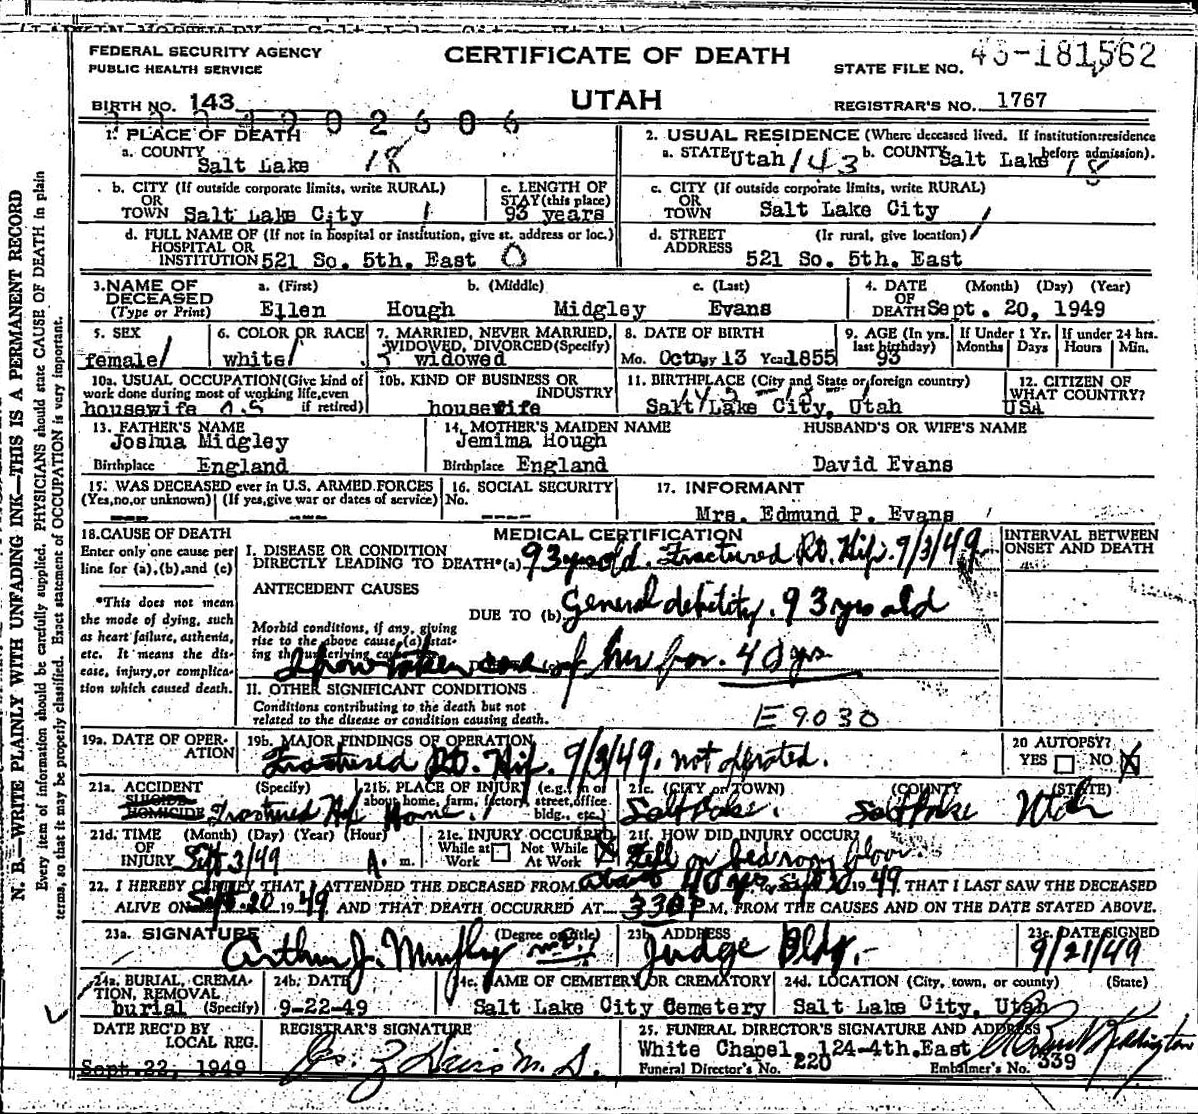 FEDERAL SECURITY AGENCY
PUBLIC HEALTH SERVICE
CERTIFICATE OF DEATH
STATE FILE NO.
BIRTH NO. 143
UTAH
REGISTRAR'S NO. 1767
1. PLACE OF DEATH
a. COUNTY
Salt Lake 18
2. USUAL RESIDENCE (Where deceased lived. If institution:residence
before admission).
a. STATE Utah 143 b. COUNTY Salt Lake 18
b. CITY (If outside corporate limits, write RURAL)
OR
TOWN Salt Lake City 1
c. LENGTH OF
STAY (this place)
93 years
c. CITY (If outside corporate limits, write RURAL)
OR
TOWN Salt Lake City
d. FULL NAME OF (If not in hospital or institution, give st. address or loc.)
HOSPITAL OR
INSTITUTION 521 So. 5th. East 0
d. STREET (If rural, give location)
ADDRESS 521 So. 5th. East
3. NAME OF a. (First) b. (Middle) c. (Last)
DECEASED
(Type or Print) Ellen Hough Midgley Evans
4. DATE (Month) (Day) (Year)
OF
DEATH Sept. 20, 1949
5. SEX
female
6. COLOR OR RACE
white
7. MARRIED, NEVER MARRIED,
WIDOWED, DIVORCED (Specify)
3 widowed
8. DATE OF BIRTH
Mo. Oct Day 13 Year 1855
9. AGE (In yrs.
last birthday)
93
If Under 1 Yr.
Months Days
If under 24 hrs.
Hours Min.
10a. USUAL OCCUPATION (Give kind of
work done during most of working life, even
if retired)
housewife
10b. KIND OF BUSINESS OR
INDUSTRY
housewife
11. BIRTHPLACE (City and State or foreign country)
Salt Lake City, Utah
12. CITIZEN OF
WHAT COUNTRY?
USA
13. FATHER'S NAME
Joshua Midgley
Birthplace England
14. MOTHER'S MAIDEN NAME
Jemima Hough
Birthplace England
HUSBAND'S OR WIFE'S NAME
David Evans
15. WAS DECEASED ever in U.S. ARMED FORCES
(Yes, no, or unknown) (If yes, give war or dates of service)
--- ---
16. SOCIAL SECURITY
No.
----
17. INFORMANT
Mrs. Edmund P. Evans
18. CAUSE OF DEATH
Enter only one cause per
line for (a), (b), and (c)
*This does not mean
the mode of dying, such
as heart failure, asthenia,
etc. It means the dis-
ease, injury, or complica-
tion which caused death.
MEDICAL CERTIFICATION
I. DISEASE OR CONDITION
DIRECTLY LEADING TO DEATH*(a) 93 yrs old. Fractured Rt. Hip. 9/3/49
ANTECEDENT CAUSES
DUE TO (b) General debility. 93 yrs old
Morbid conditions, if any, giving
rise to the above cause, (a) stat-
ing the underlying cause
I have taken care of her for 40 yrs
II. OTHER SIGNIFICANT CONDITIONS
Conditions contributing to the death but not
related to the disease or condition causing death.
E 9030
INTERVAL BETWEEN
ONSET AND DEATH
19a. DATE OF OPER-
ATION
19b. MAJOR FINDINGS OF OPERATION
Fractured Rt. Hip. 9/3/49. not operated.
20 AUTOPSY?
YES NO X
21a. ACCIDENT (Specify)
SUICIDE
HOMICIDE Fractured Hip
21b. PLACE OF INJURY (e.g., in or
about home, farm, factory, street, office
bldg., etc.)
Home.
21c. (CITY OR TOWN) (COUNTY) (STATE)
Salt Lake. Salt Lake Utah
21d. TIME (Month) (Day) (Year) (Hour)
OF
INJURY Sept 3/49 A. m.
21e. INJURY OCCURRED
While at Not While
Work At Work X
21f. HOW DID INJURY OCCUR?
Fell on bedroom floor.
22. I HEREBY CERTIFY THAT I ATTENDED THE DECEASED FROM about 40 yrs to Sept 20 1949 THAT I LAST SAW THE DECEASED
ALIVE ON Sept. 20 1949 AND THAT DEATH OCCURRED AT 3 30 P M. FROM THE CAUSES AND ON THE DATE STATED ABOVE.
23a. SIGNATURE (Degree or title)
Arthur J. Murphy M.D.
23b. ADDRESS
Judge Bldg.
23c. DATE SIGNED
9/21/49
24a. BURIAL, CREMA-
TION, REMOVAL
burial (Specify)
24b. DATE
9-22-49
24c. NAME OF CEMETERY OR CREMATORY
Salt Lake City Cemetery
24d. LOCATION (City, town, or county) (State)
Salt Lake City, Utah
DATE REC'D BY
LOCAL REG.
Sept. 22, 1949
REGISTRAR'S SIGNATURE
25. FUNERAL DIRECTOR'S SIGNATURE AND ADDRESS
White Chapel, 124-4th. East
Funeral Director's No. 220 Embalmer's No. 339
N. B.—WRITE PLAINLY WITH UNFADING INK—THIS IS A PERMANENT RECORD
Every item of information should be carefully supplied. PHYSICIANS should state CAUSE OF DEATH in plain
terms, so that it may be properly classified. Exact statement of OCCUPATION is very important.